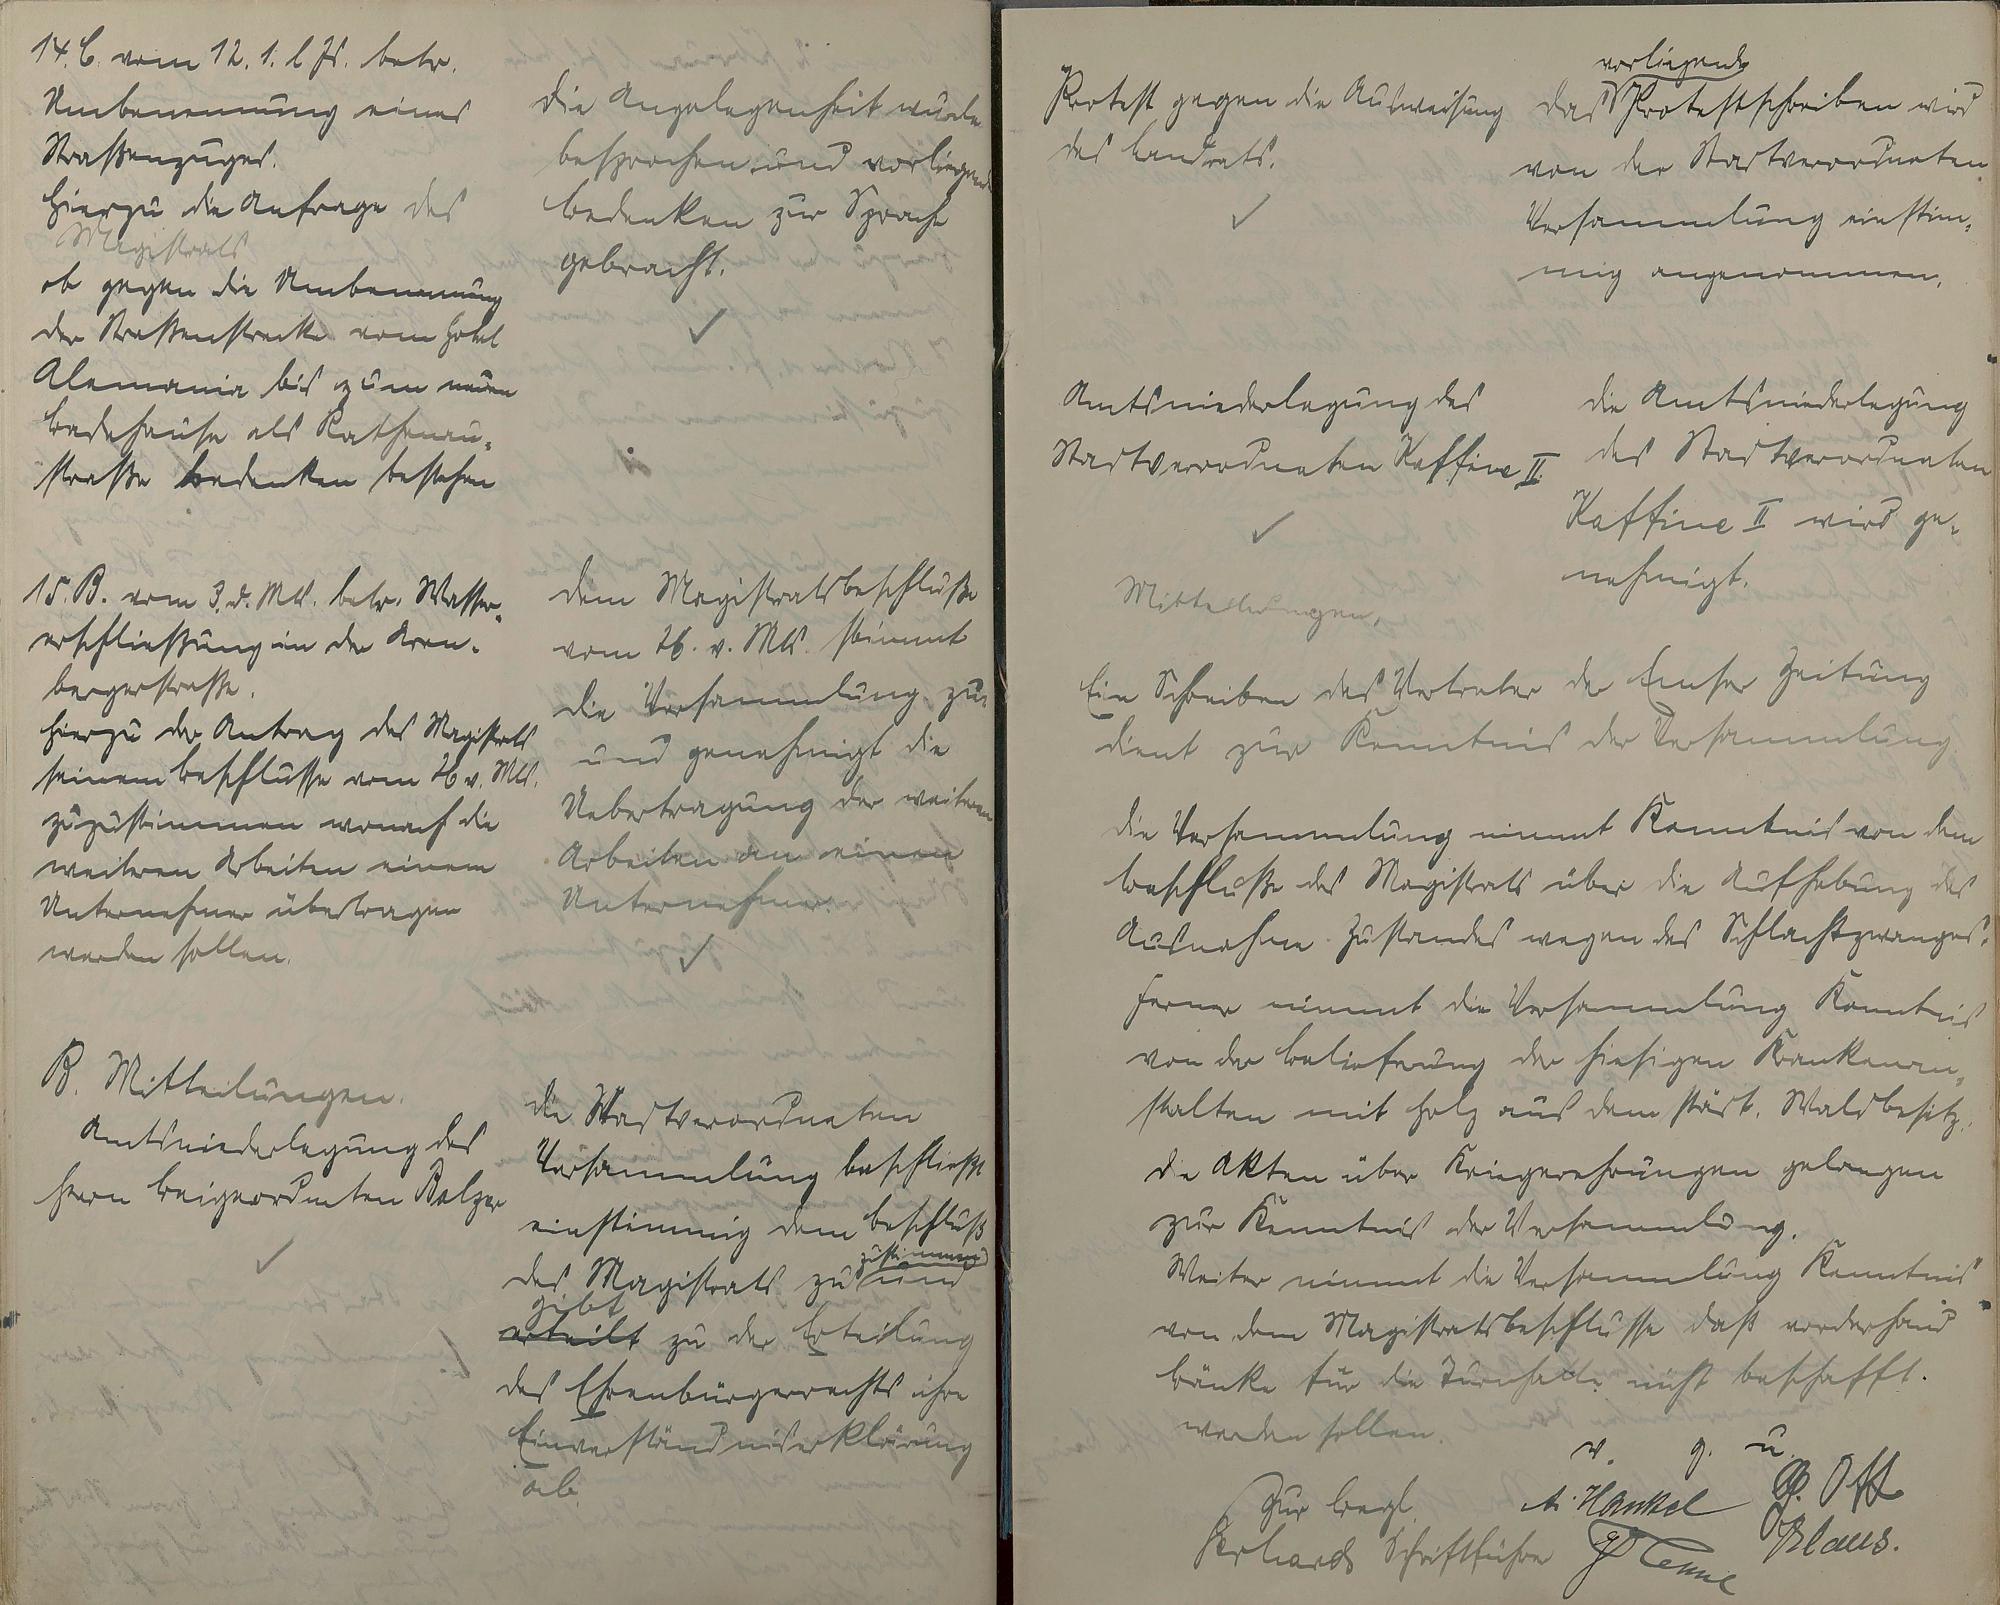 14. B. vom 12. 1. l. Js. betr.
Umbenennung eines
Straßenzuges.
Hierzu die Anfrage des
Magistrats
ob gegen die Umbenennung
der Straßenstrecke vom Hotel
Alemania bis zum neuen
Badehause als Rathenau-
straße Bedenken bestehen
Die Angelegenheit wurde
besprochen und vorliegende
Bedenken zur Sprache
gebracht.
15. B. vom 3. d. Mts. betr. Wasser-
erschließung in der Aren-
bergerstraße.
Hierzu der Antrag des Magistrats
seinem Beschlusse vom 26 v. Mts.
zuzustimmen wonach die
weiteren Arbeiten einem
Unternehmer übertragen
werden sollen.
Dem Magistratsbeschluße
vom 26. v. Mts. stimmt
die Versammlung zu
und genehmigt die
Uebertragung der weiteren
Arbeiten an einen
Unternehmer.
B. Mitteilungen.
Amtsniederlegung des
Herrn Beigeordneten Balzer
Die Stadtverordneten
Versammlung beschließt
einstimmig dem Beschluß
des Magistrats zu und
zustimmend
gibt
erteilt zu der Erteilung
des Ehrenbürgerrechts ihre
Einverständniserklärung
ab.
Protest gegen die Ausweisung
des Landrats.
vorliegende
Das Protestschreiben wird
von der Stadtverordneten
Versammlung einstim-
mig angenommen.
Amtsniederlegung des
Stadtverordneten Kaffine II.
Die Amtsniederlegung
des Stadtverordneten
Kaffine II wird ge-
nehmigt.
Mitteilungen.
Ein Schreiben des Vertreter der Emser Zeitung
dient zur Kenntnis der Versammlung
Die Versammlung nimmt Kenntnis von dem
Beschluße des Magistrats über die Aufhebung des
Ausnahme Zustandes wegen des Schlachtzwanges.
Ferner nimmt die Versammlung Kenntnis
von der Belieferung der hiesigen Krankenan-
stalten mit Holz aus dem städt. Waldbesitz.
Die Akten über Kriegerehrungen gelangen
zur Kenntnis der Versammlung.
Weiter nimmt die Versammlung Kenntnis
von dem Magistratsbeschlusse daß vorderhand
Bänke für die Turnhalle nicht beschafft.
werden sollen.
v. g. u.
Zur Begl. A. Hankel G. Ott
Gerhards Schriftführer Klaus.